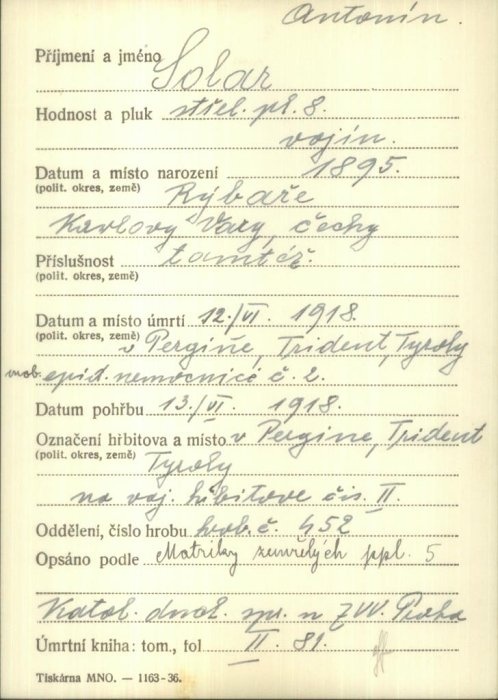 Antonín.
Příjmení a jméno Solar
Hodnost a pluk střel. pl. 8.
vojín.
Datum a místo narození 1895.
(polit. okres, země) Rybáře
Karlovy Vary, Čechy
Příslušnost tamtéž.
(polit. okres, země)
Datum a místo úmrtí 12./VI. 1918.
(polit. okres, země) v Pergine, Trident, Tyroly
mob. epid. nemocnice č. 2.
Datum pohřbu 13./VI. 1918.
Označení hřbitova a místo v Pergine, Trident
(polit. okres, země) Tyroly
na voj. hřbitově čís. II.
Oddělení, číslo hrobu hrob. č. 452
Opsáno podle Matriky zemřelých ppl. 5
Katol. duch. spr. u ZVV. Praha
Úmrtní kniha: tom., fol II. 81.
Tiskárna MNO. — 1163-36.